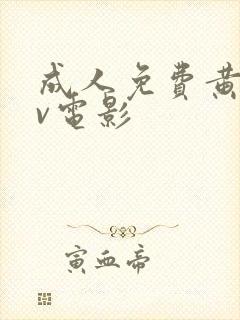 成人免費黃
v電影
寅血帝